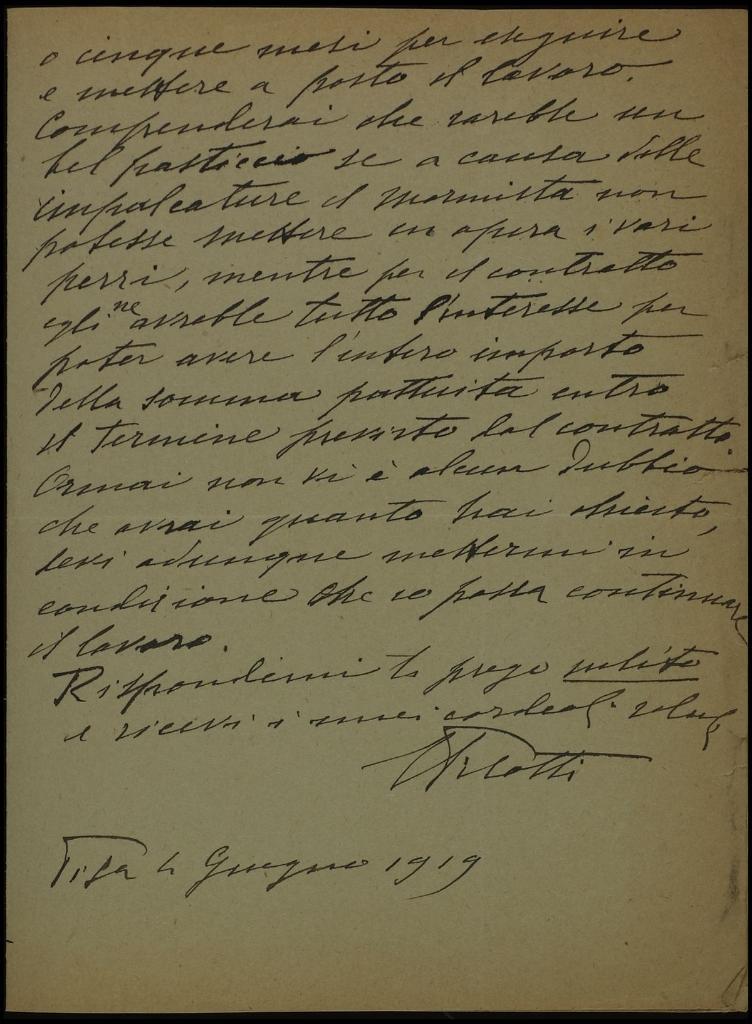 o cinque mesi per eseguire
e mettere a posto il lavoro.
Comprenderai che sarebbe un
bel pasticcio se a causa delle
impalcature il marmista non
potesse mettere in opera i vari
pezzi, mentre per il contratto
egli ne avrebbe tutto l'interesse per
poter avere l'intero importo
della somma pattuita entro
il termine previsto dal contratto.
Ormai non vi è alcun dubbio
che avrai quanto hai chiesto,
devi adunque mettermi in
condizione che io possa continuare
il lavoro.
Rispondimi ti prego subito
e ricevi i miei cordiali saluti
Pisa 4 Giugno 1919